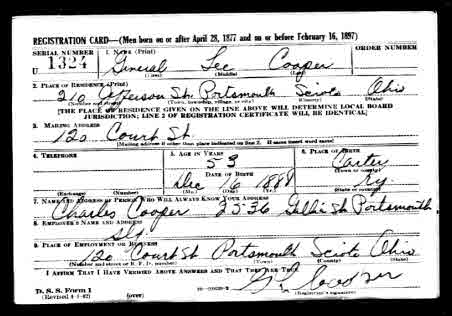 REGISTRATION CARD—(Men born on or after April 28, 1877 and on or before February 16, 1897)
SERIAL NUMBER 1. NAME (Print) ORDER NUMBER
U 1324 General Lee Cooper
(First) (Middle) (Last)
2. PLACE OF RESIDENCE (Print)
210 Jefferson St. Portsmouth Scioto Ohio
(Number and street) (Town, township, village, or city) (County) (State)
[THE PLACE OF RESIDENCE GIVEN ON THE LINE ABOVE WILL DETERMINE LOCAL BOARD
JURISDICTION; LINE 2 OF REGISTRATION CERTIFICATE WILL BE IDENTICAL]
3. MAILING ADDRESS
120 Court St.
[Mailing address if other than place indicated on line 2. If same insert word same]
4. TELEPHONE 5. AGE IN YEARS 6. PLACE OF BIRTH
53 Carter
DATE OF BIRTH (Town or county)
Dec 16 1888 Ky.
(Exchange) (Number) (Mo.) (Day) (Yr.) (State or country)
7. NAME AND ADDRESS OF PERSON WHO WILL ALWAYS KNOW YOUR ADDRESS
Charles Cooper 2536 Gallia St Portsmouth
8. EMPLOYER'S NAME AND ADDRESS
9. PLACE OF EMPLOYMENT OR BUSINESS
120 Court St Portsmouth Scioto Ohio
(Number and street or R. F. D. number) (Town) (County) (State)
I AFFIRM THAT I HAVE VERIFIED ABOVE ANSWERS AND THAT THEY ARE TRUE.
D. S. S. Form 1
(Revised 4-1-42) (over) (Registrant's signature)